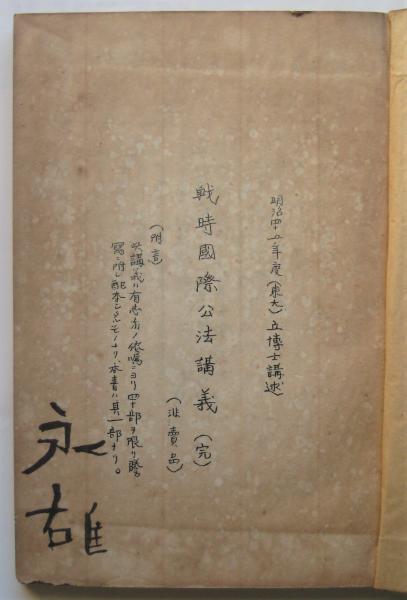 明治四十五年度(東大)立博士講述
戦時國際公法講義(完)
(非賣品)
(附言)
此講義ハ有志者ノ依嘱ニヨリ四十部ヲ限リ謄
寫ニ附シ配本シタルモノナリ、本書ハ其一部ナリ。
永雄